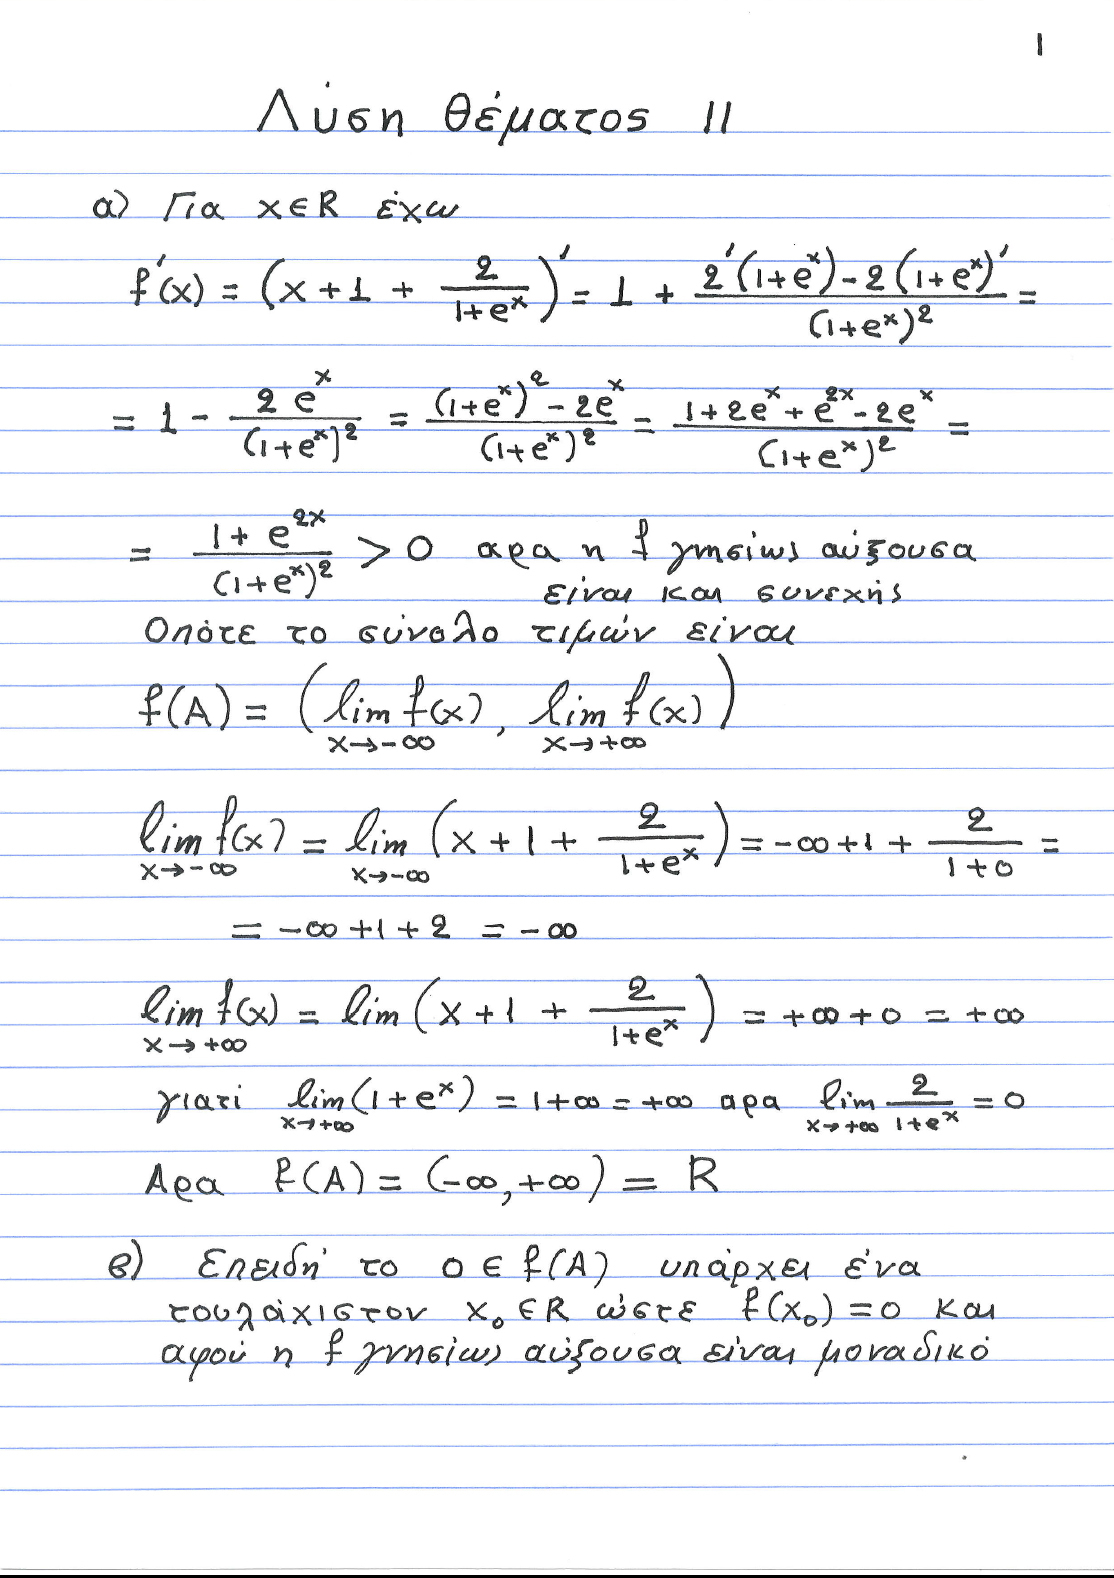 1
Λύση θέματος 11
α) Για x∈R έχω
f'(x) = (x+1 + 2/(1+e^x))' = 1 + (2'(1+e^x)-2(1+e^x)')/(1+e^x)^2 =
= 1 - 2e^x/(1+e^x)^2 = ((1+e^x)^2-2e^x)/(1+e^x)^2 = (1+2e^x+e^2x-2e^x)/(1+e^x)^2 =
= (1+e^2x)/(1+e^x)^2 > 0 αρα η f γνησίως αύξουσα
είναι και συνεχής
Οπότε το σύνολο τιμών είναι
f(A) = (lim f(x), lim f(x))
x→-∞ x→+∞
lim f(x) = lim (x+1+ 2/(1+e^x)) = -∞+1+ 2/(1+0) =
x→-∞ x→-∞
= -∞+1+2 = -∞
lim f(x) = lim (x+1 + 2/(1+e^x)) = +∞+0 = +∞
x→+∞
γιατί lim(1+e^x) = 1+∞=+∞ αρα lim 2/(1+e^x) = 0
x→+∞ x→+∞
Αρα f(A) = (-∞,+∞) = R
β) Επειδή το 0∈f(A) υπάρχει ένα
τουλάχιστον x₀∈R ώστε f(x₀)=0 και
αφού η f γνησίως αύξουσα είναι μοναδικό